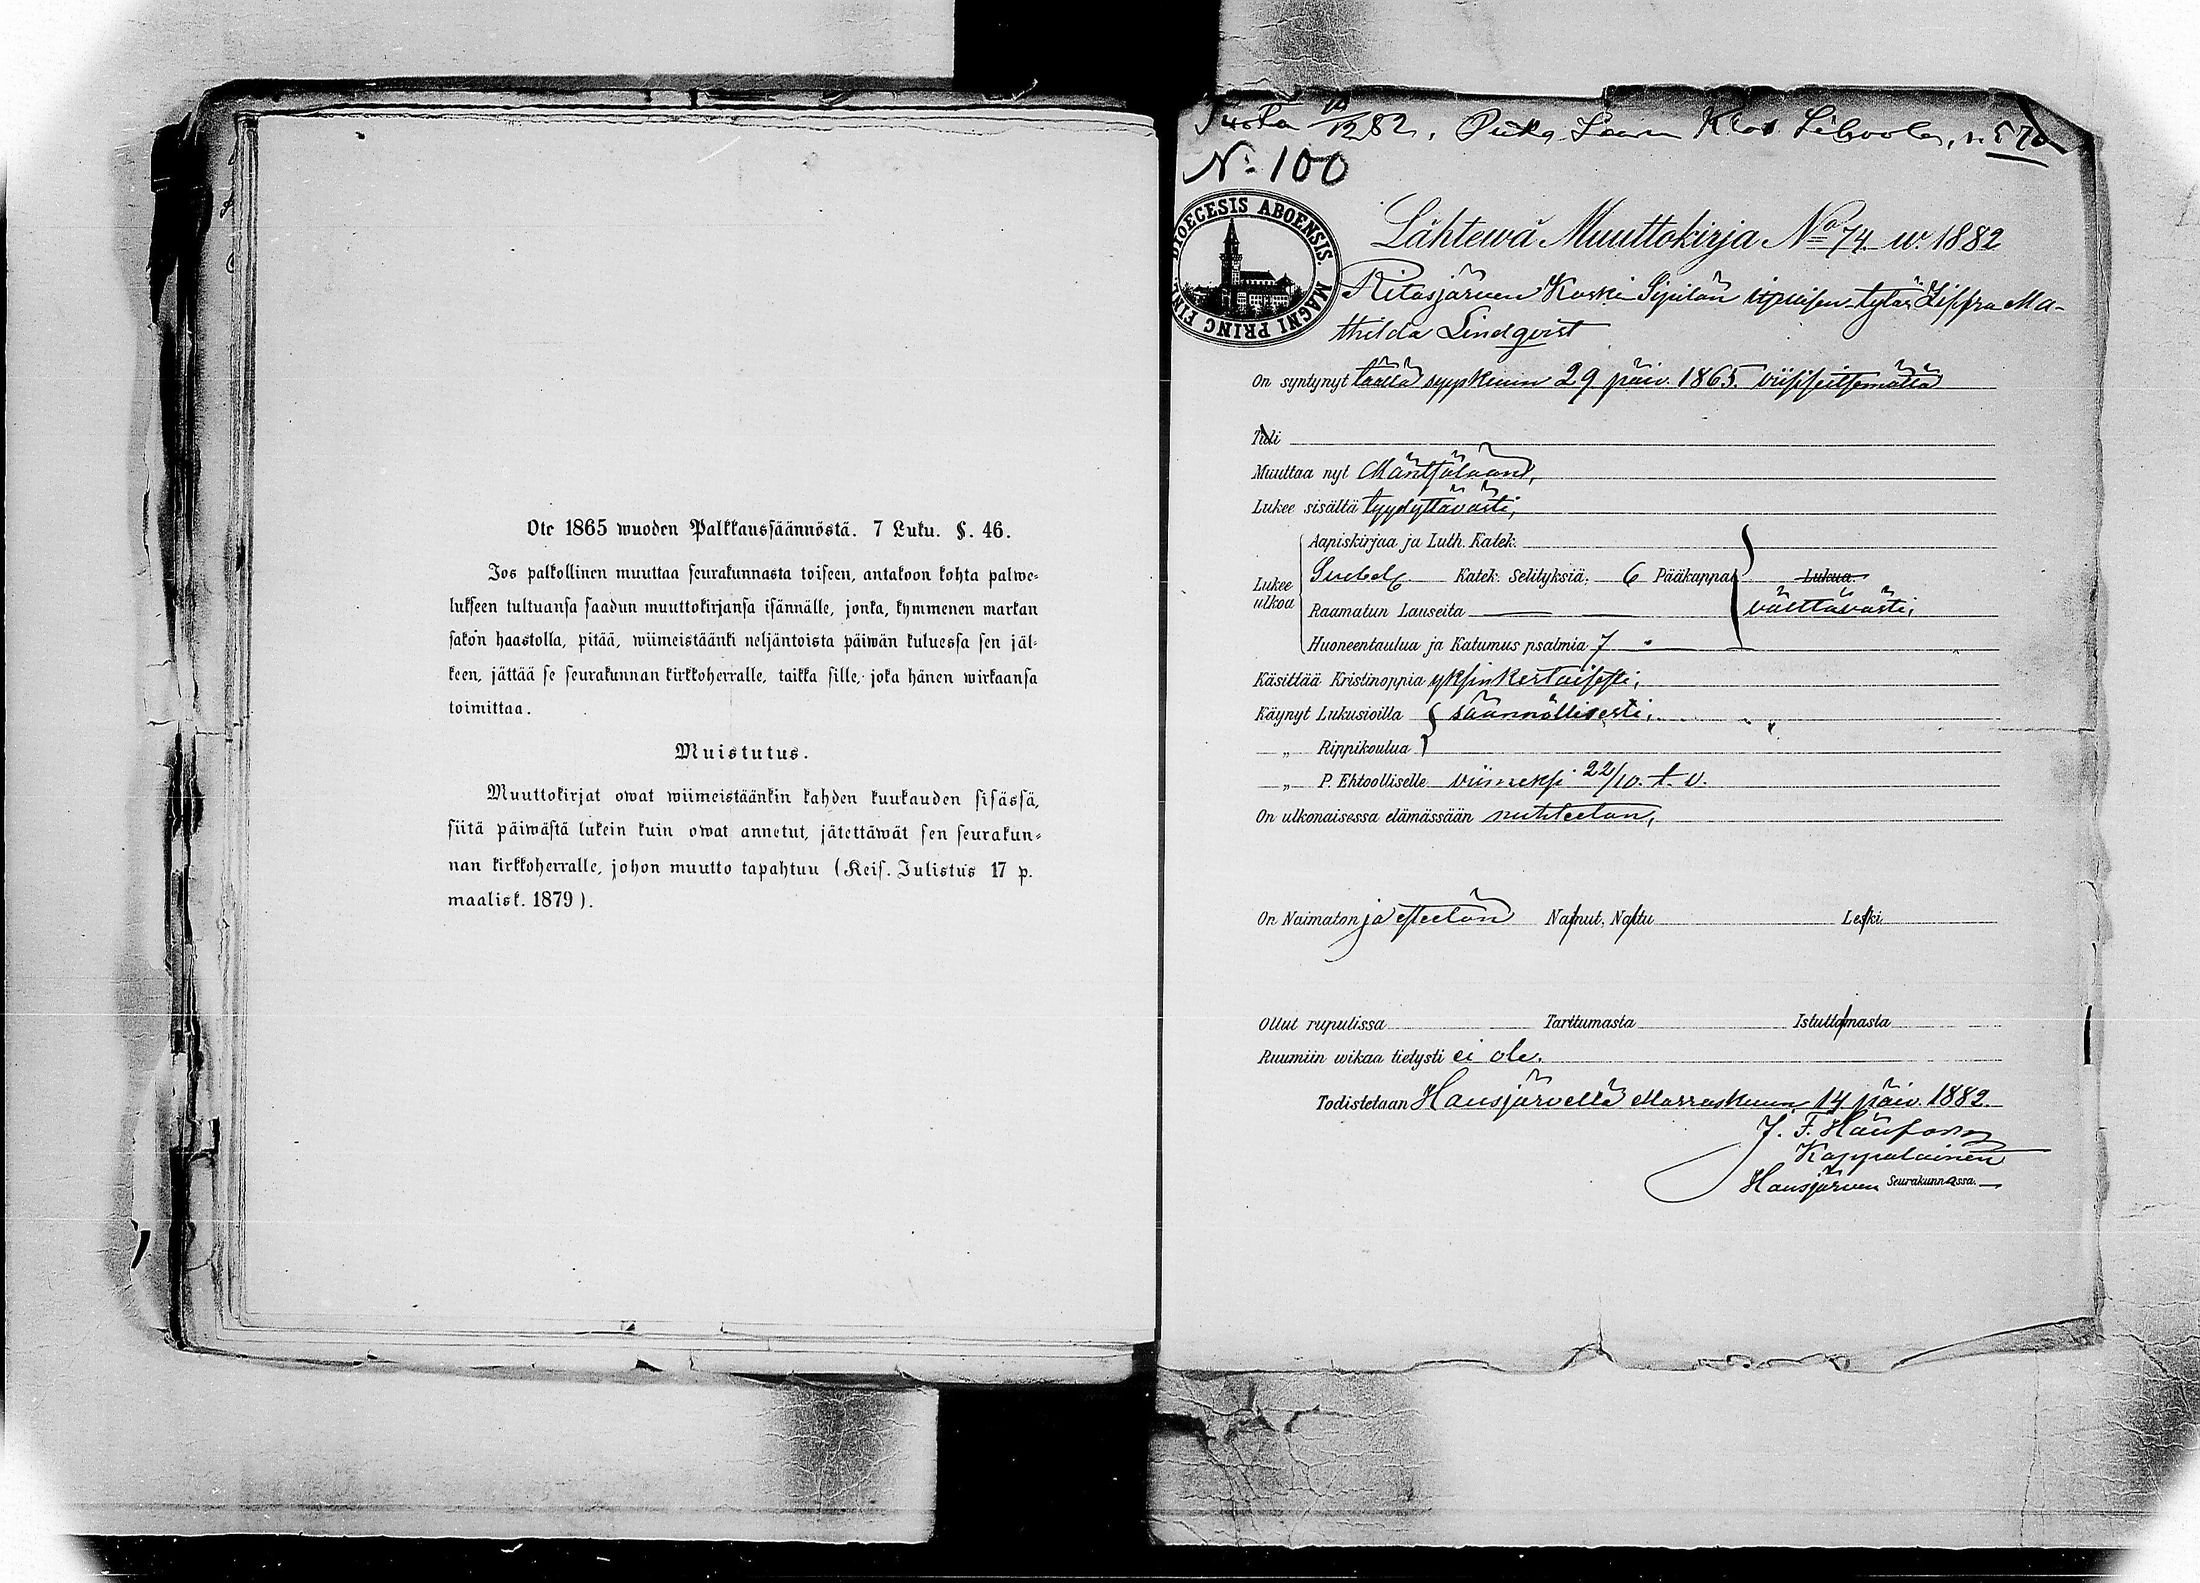 Ote 1865 wuoden Palkkaussäännöstä. 7 Luku. §. 46.
Jos palkollinen muuttaa seurakunnasta toiseen, antakoon kohta palwe-
lukseen tultuansa saadun muuttokirjansa isännälle, jonka, kymmenen markan
sakon haastolla, pitää, wiimeistäänki neljäntoista päiwän kuluessa sen jäl-
keen, jättää se seurakunnan kirkkoherralle, taikka sille, joka hänen wirkaansa
toimittaa.
Muistutus.
Muuttokirjat owat wiimeistäänkin kahden kuukauden sisässä,
siitä päiwästä lukein kuin owat annetut, jätettäwät sen seurakun-
nan kirkkoherralle, johon muutto tapahtuu (Keis. Julistus 17 p.
maalisk. 1879).
12 82, Piika
N: 100
DIOECESIS ABOENSIS. MAGNI PRINC FINL.
Lähtewä Muuttokirja No 74 w. 1882
Sipilän tytär Ma-
thilda Lindqvist
On syntynyt täällä syyskuun 29 päiv. 1865 viisiseitsemättä
Tuli
Muuttaa nyt Mäntsälään,
Lukee sisältä tyydyttävästi,
Lukee ulkoa
Aapiskirjaa ja Luth. Katek.
Katek. Selityksiä. 6 Pääkappal Lukua.
Raamatun Lauseita välttävästi,
Huoneentaulua ja Katumus psalmia 7
Käsittää Kristinoppia yksinkertaisesti,
Käynyt Lukusioilla säännöllisesti,
„ Rippikoulua
„ P. Ehtoolliselle viimeksi 22/10. t. v.
On ulkonaisessa elämässään nuhteeton,
On Naimaton ja esteetön Nainut, Naitu Leski
Ollut rupulissa Tarttumasta Istuttamasta
Ruumiin wikaa tietysti ei ole.
Todistetaan Hausjärvellä Marraskuun 14 päiv. 1882.
J. F.
Kappalainen
Hausjärven Seurakunnassa.